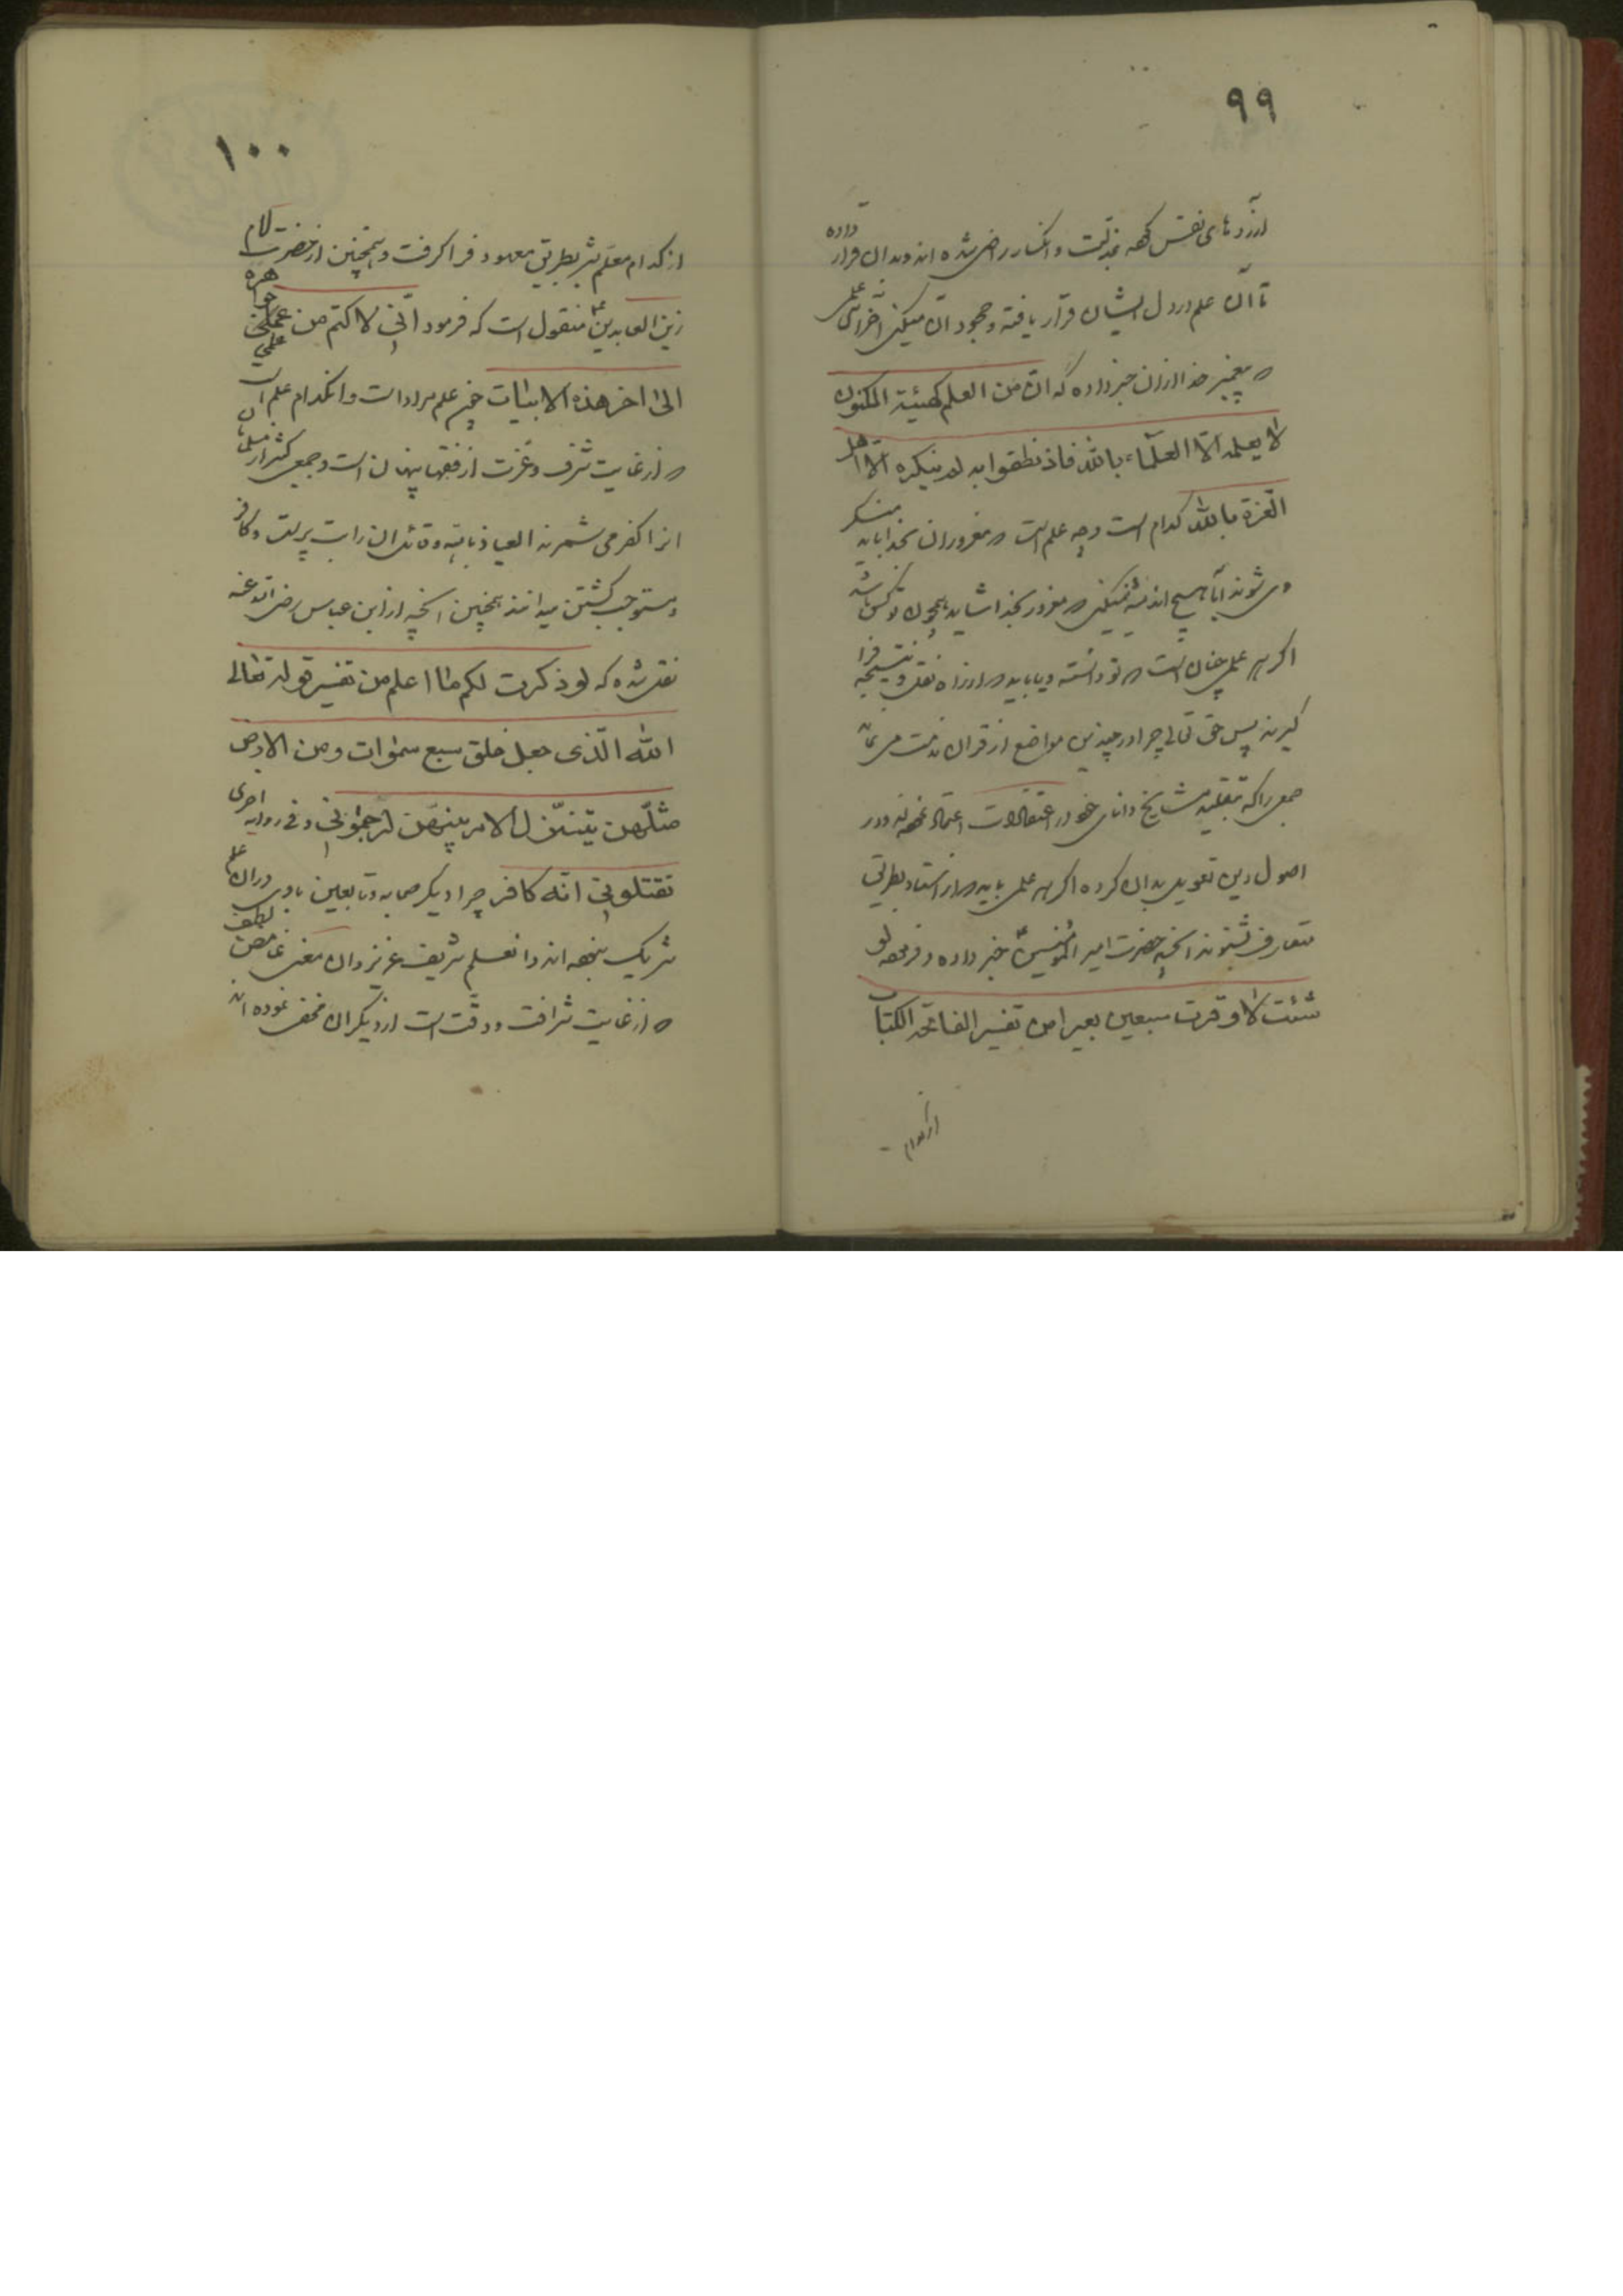 ۹۹
آرزوهای نفس کهه بمذلت و انکسار راضی شده اند و بدان قرار داده
تا آن علم در دل ایشان قرار یافته و جحود آن میکنند آخر آن علمی
که پیغمبر خدا از آن خبر داده که ان من العلم کهیئة المکنون
لا یعلمه الا العلماء بالله فاذ نطقوا به لم ینکره الا اهل
الغرة بالله کدام است و چه علم است که مغروران بخدا بآن منکر
می شوند آیا هیچ اندیشه نمیکنی که مغرور بخدا شاید همچون تو کس باشد
اگر هر علمی چنان است که تو دانسته و بیابید که از راه نقل و نتیجه فرا
گیرند پس حق تعالی چرا در چندین مواضع از قرآن مذمت می نماید
جمعی را که بتقلید مشایخ و آبای خود در اعتقادات اعتماد نموده و در
اصول دین تعویل بدان کرده اگر هر علمی باید که از استاد بطریق
متعارف شنوند آنچه حضرت امیر المؤمنین خبر داده و فرموده لو
شئت لاوقرت سبعین بعیرا من تفسیر الفاتحة الکتاب
از کدام
۱۰۰
از کدام معلم بشر بطریق معهود فرا گرفت و همچنین از حضرت امام
زین العابدین ع منقول است که فرمود انی لاکتم من علمی جواهره
الی اخر هذه الابیات چه علم مراد است و آنکدام علم است
که از غایت شرف و عزت از فقها پنهان است و جمعی کثیر از مسلمانان
انرا کفر می شمرند العیاذ بالله و قائل آن را بت پرست و کافر
و مستوجب کشتن میدانند همچنین آنچه از ابن عباس رضی الله عنه
نقل شده که لو ذکرت لکم ما اعلم من تفسیر قوله تعالی
الله الذی جعل خلق سبع سموات و من الارض
مثلهن یتنزل الامر بینهن لرجمونی و فی روایه اخری
تقتلونی انه کافر چرا دیگر صحابه و تابعین با وی در آن علم
شریک نبوده اند و آن علم شریف عزیز و آن معنی غامض لطیف
که از غایت شرافت و دقت است از دیگران مخفی نموده اند